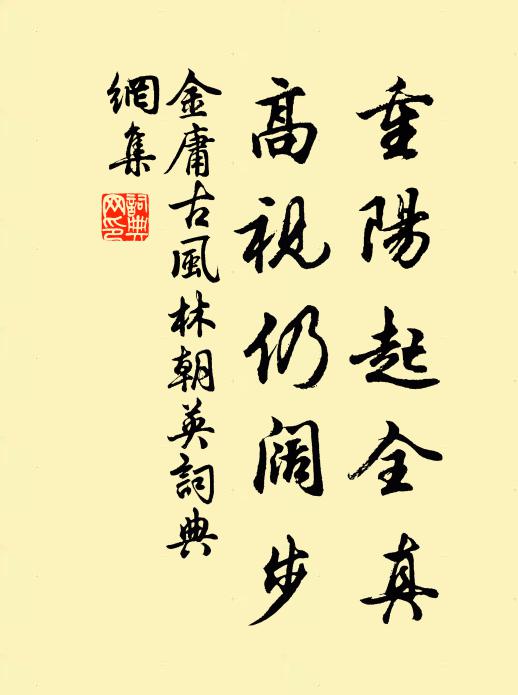 重陽起全真
高視仍闊步
金庸古風林朝英詞典
網集
詞典
网印